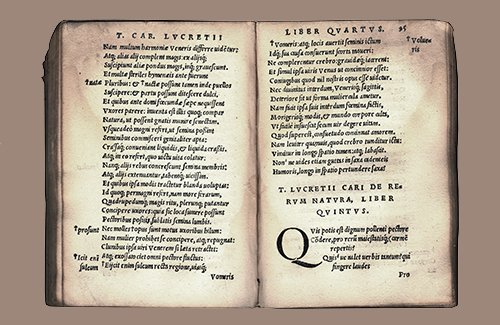 T. CAR. LVCRETII
Nam multum harmoniæ Veneris differre uidẽtur:
Atq; alias alij complent magis, ex alijsq;
Suscipiunt aliæ pondus magis, inq; grauescunt.
Et multæ steriles hymenæis ante fuerunt
†natæ Pluribus: & †nactæ possunt tamen inde puellos
Suscipere: & partu possunt ditescere dulci.
Et quibus ante domi fœcundæ sæpe nequissent
Vxores parere: inuenta est illis quoq; compar
Natura, ut possent gnatis munire senectam.
Vsqueadeo magni refert, ut semina possint
Seminibus commisceri genitaliter apta:
Crassaq; conueniant liquidis, & liquida crassis.
Atq; in eo refert, quo uictu uita colatur:
Namq; alijs rebus concrescunt semina membris:
Atq; alijs extenuantur, tabentq; uicissim.
Et quibus ipsa modis tractetur blanda uoluptas:
Id quoq; permagni refert, nam more ferarum,
Quadrupedumq; magis ritu, plerunq; putantur
Concipere uxores: quia sic loca sumere possunt
Pectoribus positis, sublatis semina lumbis.
†prosunt Nec molles †opus sunt motus uxoribus hilum:
Nam mulier prohibet se concipere, atq; repugnat:
Clunibus ipsa uiri Venerem si læta retractet:
Atq; exossato ciet omni pectore fluctus:
†Ieit enĩ sulcum †Eijcit enim sulcum recta regione, uiaq;
Vomeris
LIBER QVARTVS. 95
†Vomeris: atq; locis auertit seminis ictum †Volueris
Idq; sua causa consuerunt scorti moueri:
Ne complerentur crebro: grauidæq; iacerent:
Et simul ipsa uiris Venus ut concinnior esset:
Coniugibus quod nil nostris opus esse uidetur.
Nec diuinitus interdum, Venerisq; sagittis,
Deteriore fit ut forma muliercula ametur.
Nam facit ipsa suis interdum fœmina factis,
Morigerisq; modis, & mundo corpore cultu,
Vt facile insuescat secum uir degere uitam.
Quod superest, consuetudo concinnat amorem,
Nam leuiter quamuis, quod crebro tunditur ictu:
Vincitur in longo spatio tamen, atq; labascit.
Non ne uides etiam guttas in saxa cadenteis
Humoris, longo in spatio pertundere saxa?
T. LVCRETII CARI DE RE-
RVM NATVRA, LIBER
QVINTVS.
Qvis potis est dignum pollenti pectore
Cõdere, pro rerũ maiestatisq; carmẽ
repertis?
Quis'ue ualet uerbis tantum qui
fingere laudes
Pro